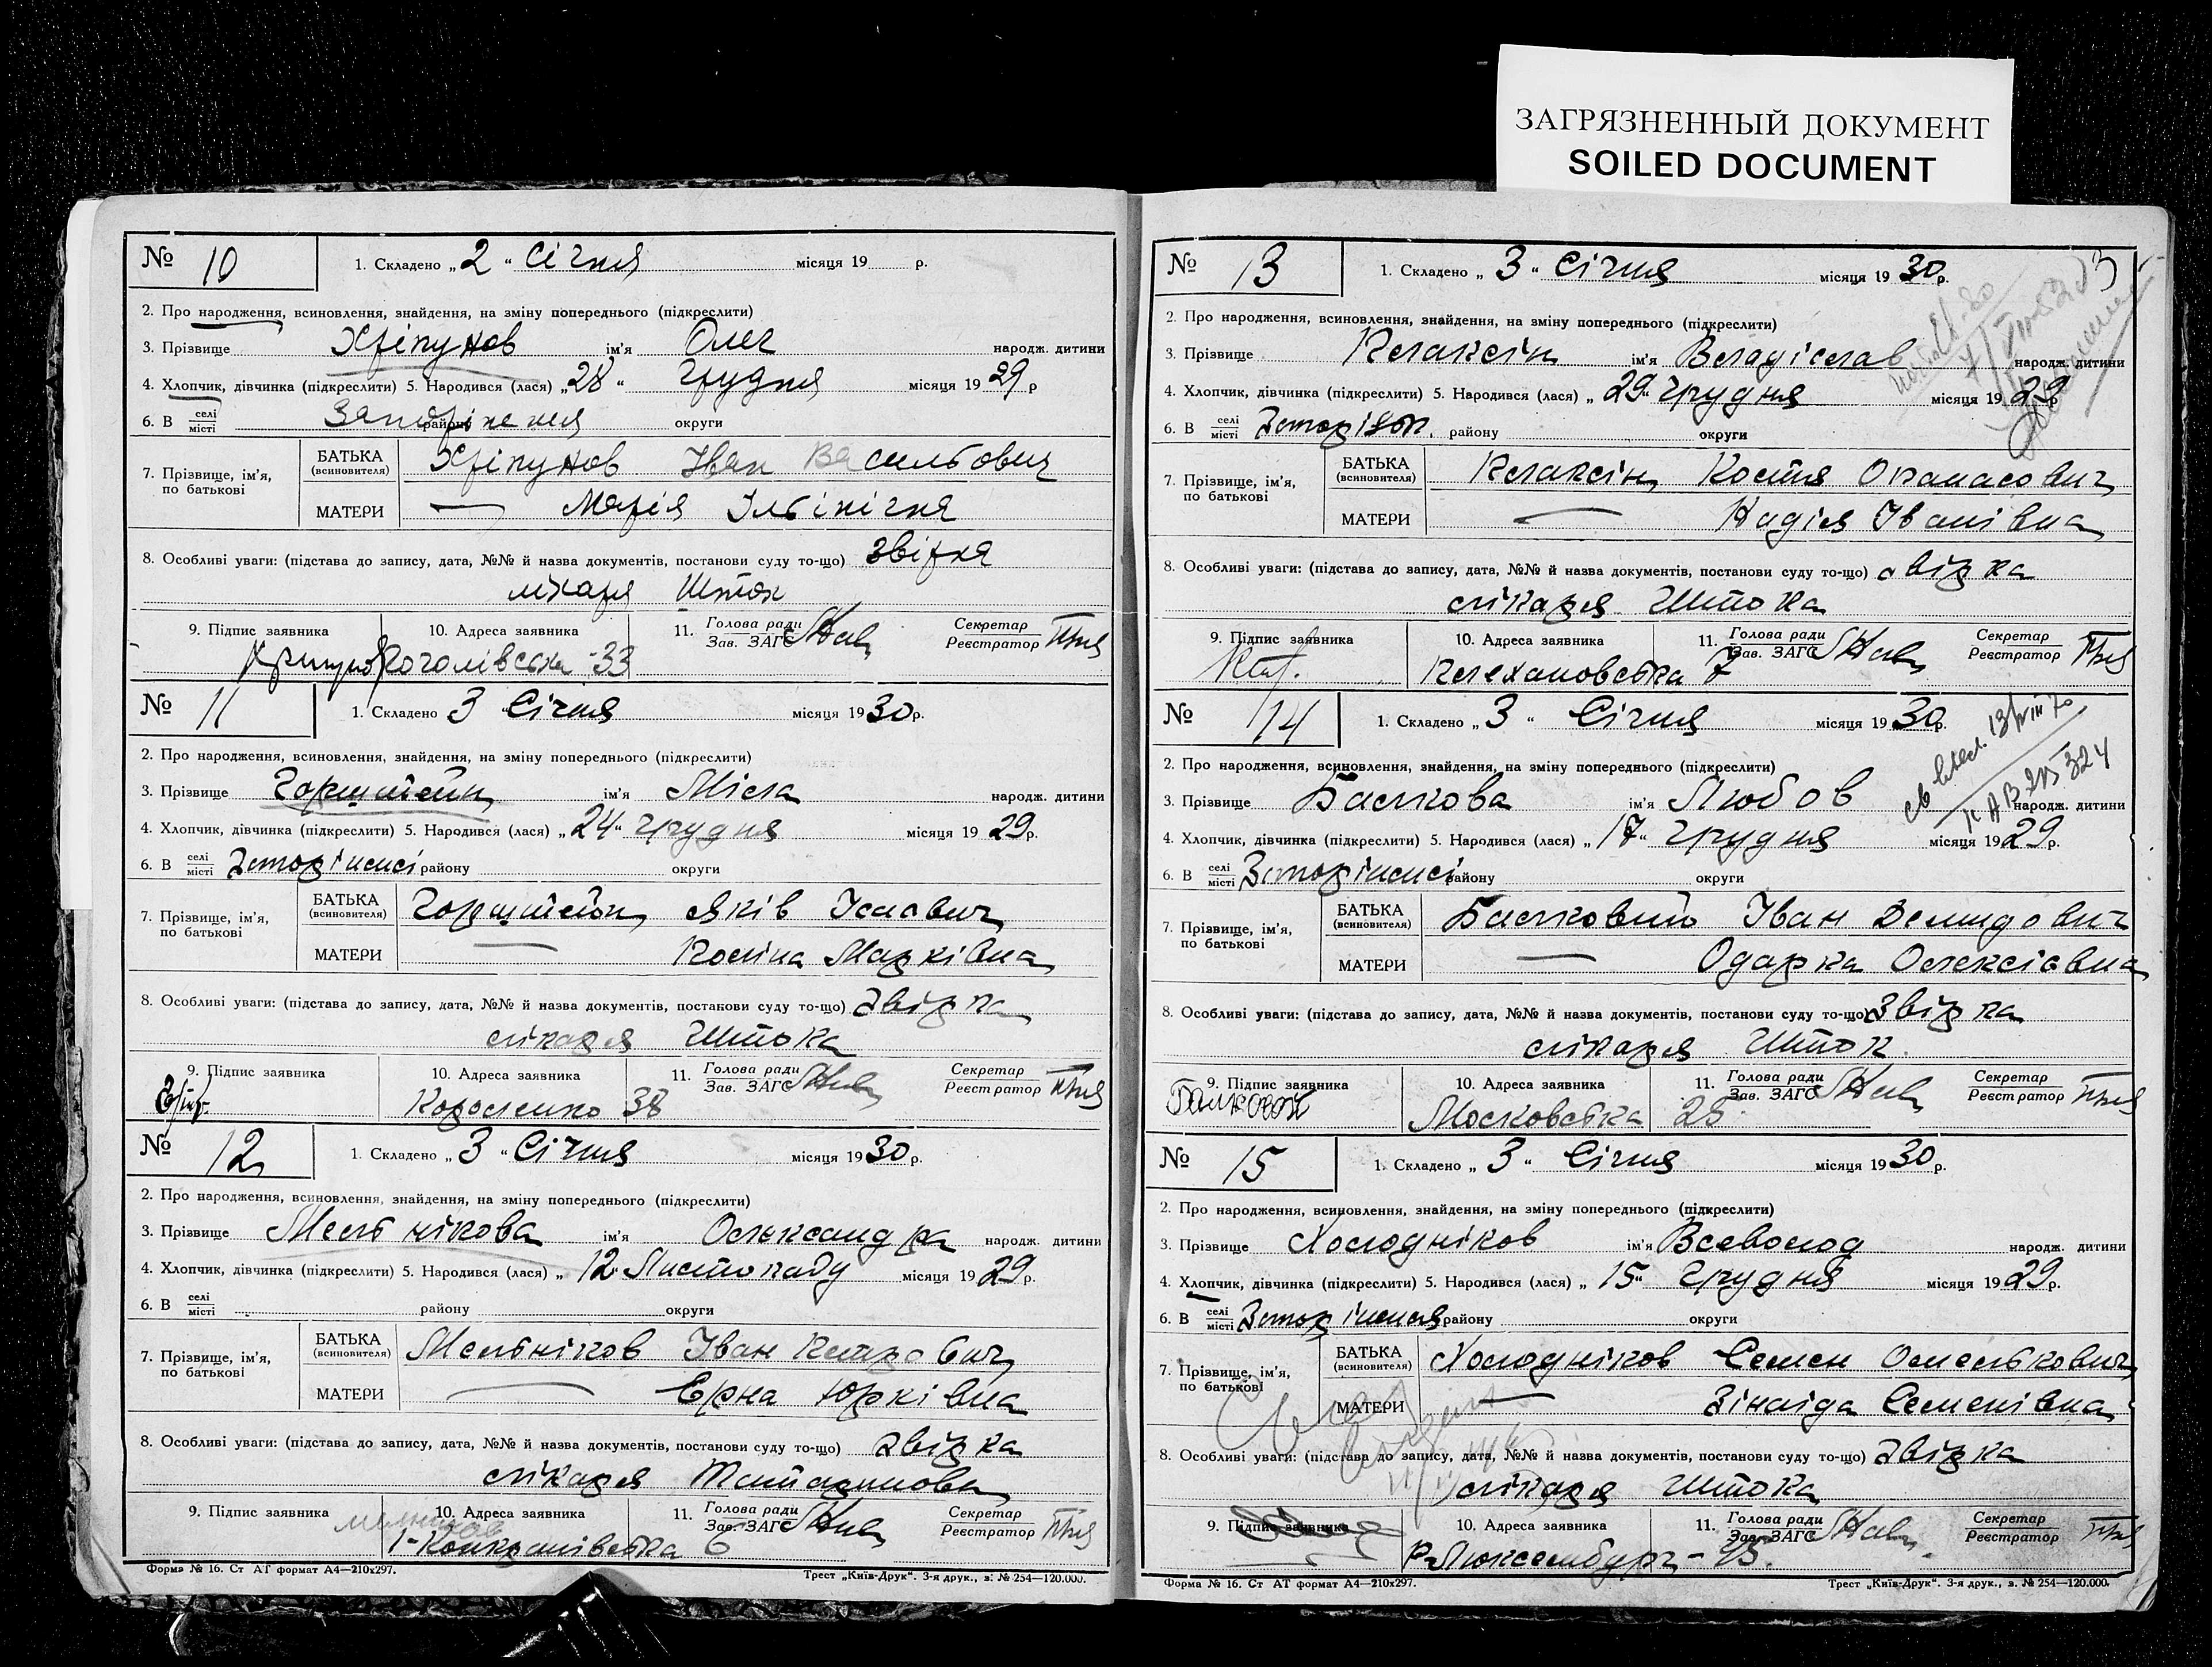 ЗАГРЯЗНЕННЫЙ ДОКУМЕНТ
SOILED DOCUMENT
№ 10 1. Складено „2“ Січня місяця 19 р.
2. Про народження, всиновлення, знайдення, на зміну попереднього (підкреслити)
3. Прізвище Хріпунов ім'я Олег народж. дитини
4. Хлопчик, дівчинка (підкреслити) 5. Народився (лася) „28“ грудня місяця 1929 р
6. В селі місті району округи
7. Прізвище, ім'я, по батькові БАТЬКА (всиновителя) Хріпунов Іван Васильович
МАТЕРИ — Марія Ільінічна
8. Особливі уваги: (підстава до запису, дата, №№ й назва документів, постанови суду то-що) звірка
лікаря Шток
9. Підпис заявника 10. Адреса заявника 11. Голова ради Зав. ЗАГС Секретар Реєстратор
Гоголівська 33
№ 11 1. Складено 3 “ Січня місяця 1930 р.
2. Про народження, всиновлення, знайдення, на зміну попереднього (підкреслити)
3. Прізвище Горштейн ім'я Міла народж. дитини
4. Хлопчик, дівчинка (підкреслити) 5. Народився (лася) „24“ грудня місяця 1929 р.
6. В селі місті Запоріжжі району округи
7. Прізвище, ім'я, по батькові БАТЬКА (всиновителя) Горштейн Яків Ісаович
МАТЕРИ — Марківна
8. Особливі уваги: (підстава до запису, дата, №№ й назва документів, постанови суду то-що) звірка
лікаря Штока
9. Підпис заявника 10. Адреса заявника 11. Голова ради Зав. ЗАГС Секретар Реєстратор
Короленко 38
№ 12 1. Складено „3“ Січня місяця 1930 р.
2. Про народження, всиновлення, знайдення, на зміну попереднього (підкреслити)
3. Прізвище Мельнікова ім'я Олександра народж. дитини
4. Хлопчик, дівчинка (підкреслити) 5. Народився (лася) „12 Листопаду місяця 1929 р.
6. В селі місті району округи
7. Прізвище, ім'я, по батькові БАТЬКА (всиновителя) Мельніков Іван
МАТЕРИ — Ерна Юрківна
8. Особливі уваги: (підстава до запису, дата, №№ й назва документів, постанови суду то-що) звірка
лікаря Татаринова
9. Підпис заявника 10. Адреса заявника 11. Голова ради Зав. ЗАГС Секретар Реєстратор
6
Форма № 16. Ст АТ формат А4—210х297. Трест „Київ-Друк“. 3-я друк., з. № 254—120.000.
№ 13 1. Складено „3“ Січня місяця 1930 р.
2. Про народження, всиновлення, знайдення, на зміну попереднього (підкреслити)
3. Прізвище Клаксін ім'я Владіслав народж. дитини
4. Хлопчик, дівчинка (підкреслити) 5. Народився (лася) „29“ грудня місяця 1929 р
6. В селі місті району округи
7. Прізвище, ім'я, по батькові БАТЬКА (всиновителя) Клаксін Костя Опанасович
МАТЕРИ — Надія Іванівна
8. Особливі уваги: (підстава до запису, дата, №№ й назва документів, постанови суду то-що) звірка
лікаря Штока
9. Підпис заявника 10. Адреса заявника 11. Голова ради Зав. ЗАГС Секретар Реєстратор
Плехановська 7
№ 14 1. Складено „3“ Січня місяця 1930 р.
2. Про народження, всиновлення, знайдення, на зміну попереднього (підкреслити)
3. Прізвище Балкова ім'я Любов народж. дитини
4. Хлопчик, дівчинка (підкреслити) 5. Народився (лася) „17“ грудня місяця 1929 р.
6. В селі місті Запоріжжі району округи
7. Прізвище, ім'я, по батькові БАТЬКА (всиновителя) Балковий Іван Демидович
МАТЕРИ — Одарка Олексіовна
8. Особливі уваги: (підстава до запису, дата, №№ й назва документів, постанови суду то-що) звірка
лікаря Шток
9. Підпис заявника 10. Адреса заявника 11. Голова ради Зав. ЗАГС Секретар Реєстратор
Московська 25
№ 15 1. Складено „3“ Січня місяця 1930 р.
2. Про народження, всиновлення, знайдення, на зміну попереднього (підкреслити)
3. Прізвище Холодніков ім'я Всеволод народж. дитини
4. Хлопчик, дівчинка (підкреслити) 5. Народився (лася) „15“ грудня місяця 1929 р.
6. В селі місті Запоріжжя району округи
7. Прізвище, ім'я, по батькові БАТЬКА (всиновителя) Холодніков Семен Омелькович
МАТЕРИ — Зінаіда Семенівна
8. Особливі уваги: (підстава до запису, дата, №№ й назва документів, постанови суду то-що) звірка
лікаря Штока
9. Підпис заявника 10. Адреса заявника 11. Голова ради Зав. ЗАГС Секретар Реєстратор
Р. Люксембург
Форма № 16. Ст АТ формат А4—210х297. Трест „Київ-Друк“. 3-я друк., з. № 254—120.000.